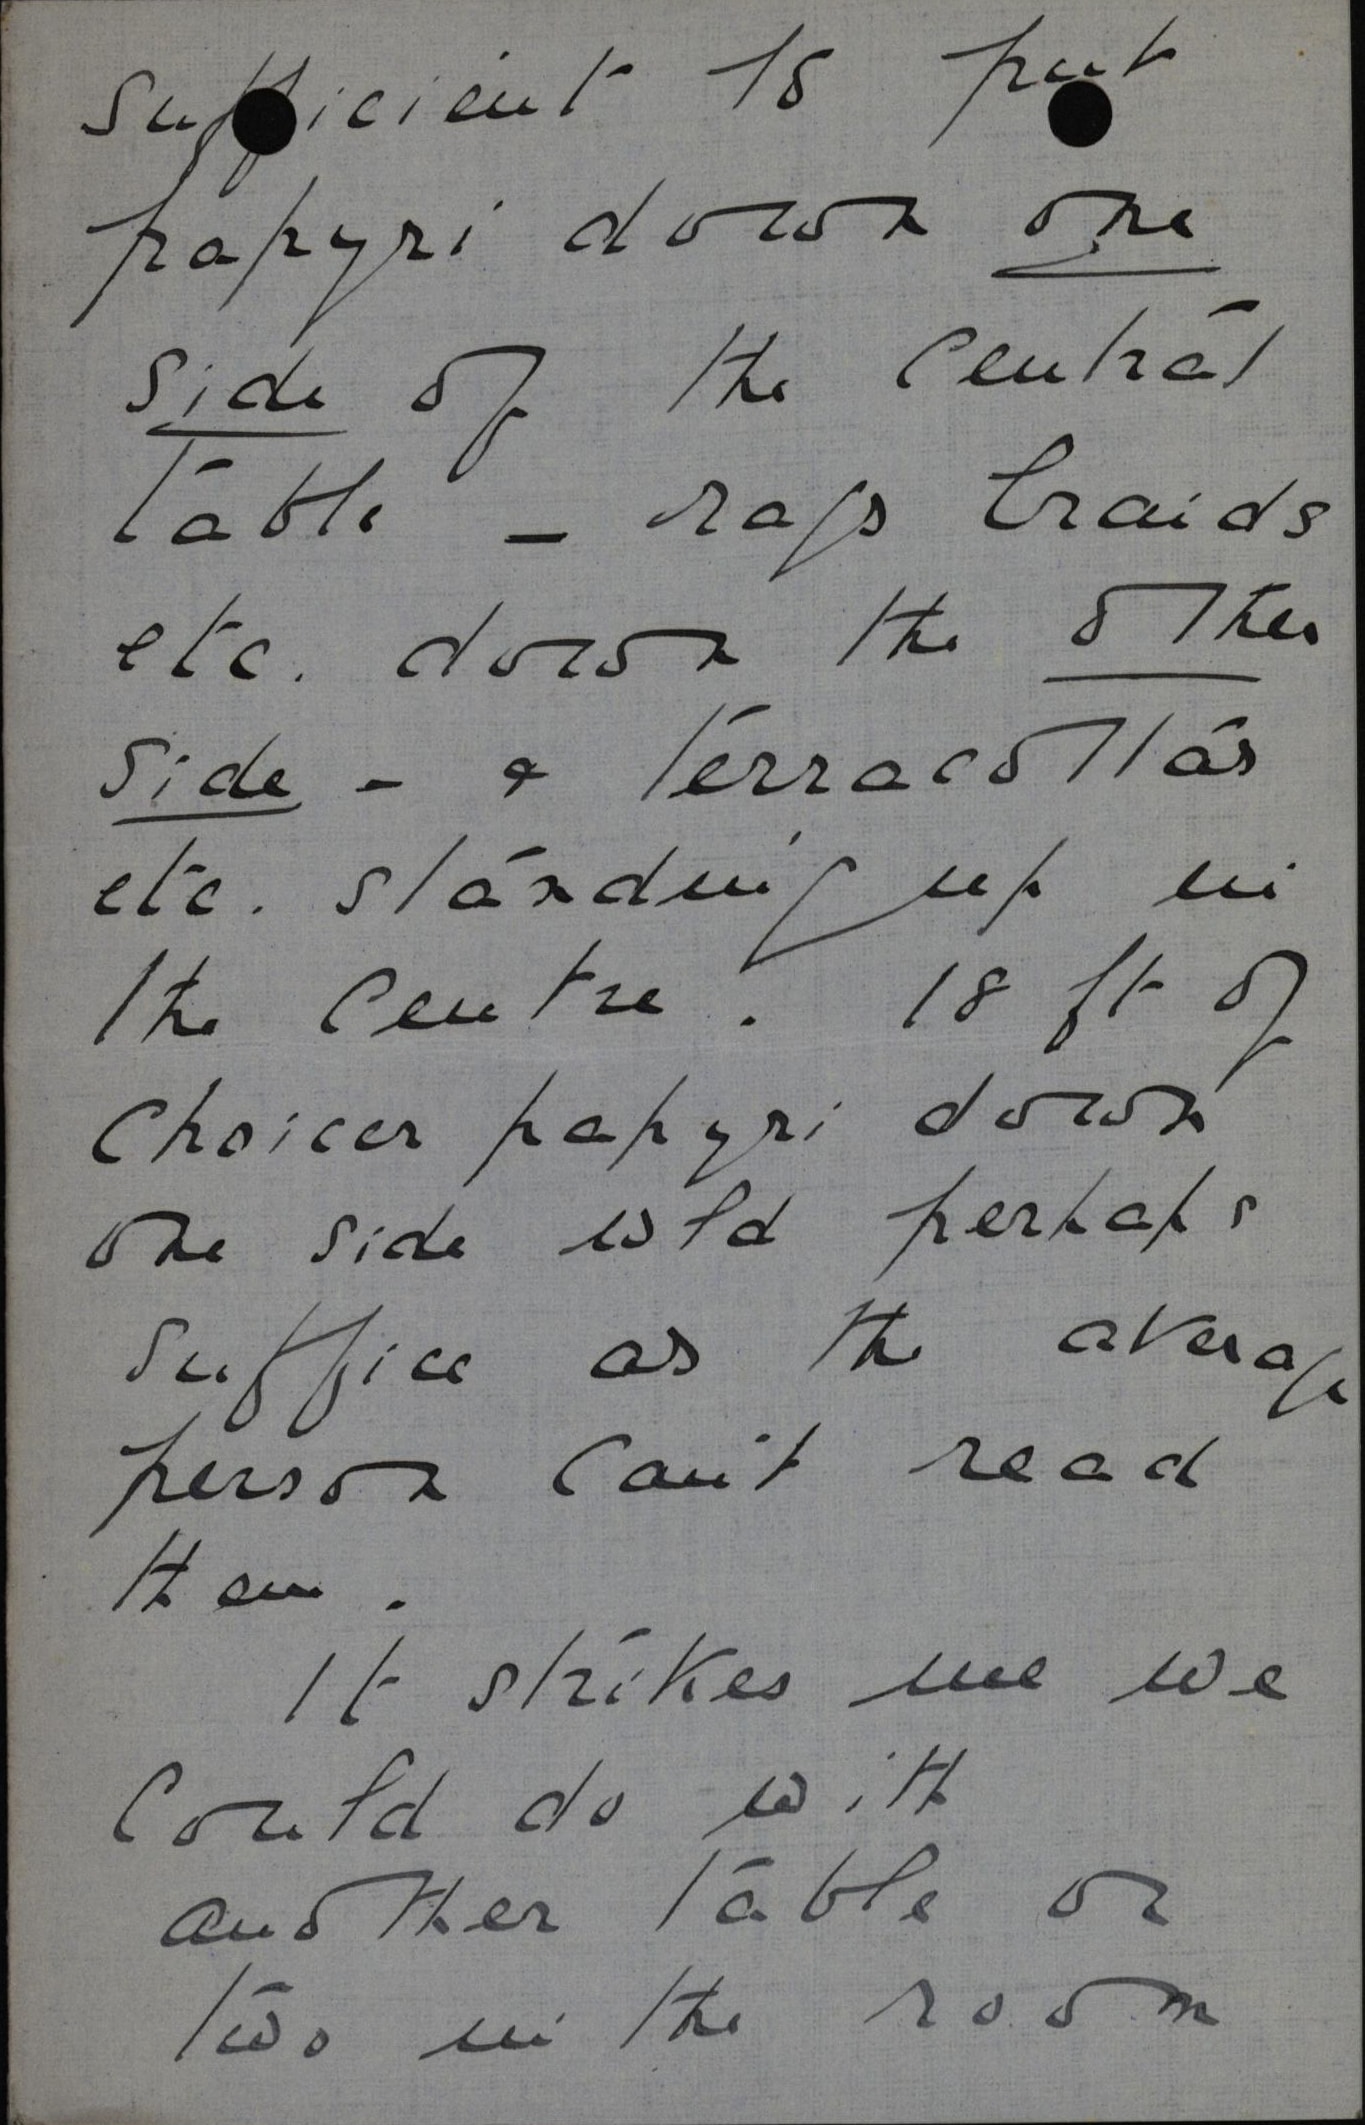 sufficient to put
papyri down one
side of the central
table – rags braids
etc. down the other
side – & terracottas
etc. standing up in
the centre. 18 ft of
choicer papyri down
one side wld perhaps
suffice as the average
person can't read
them.
It strikes me we
could do with
another table or
two in the room